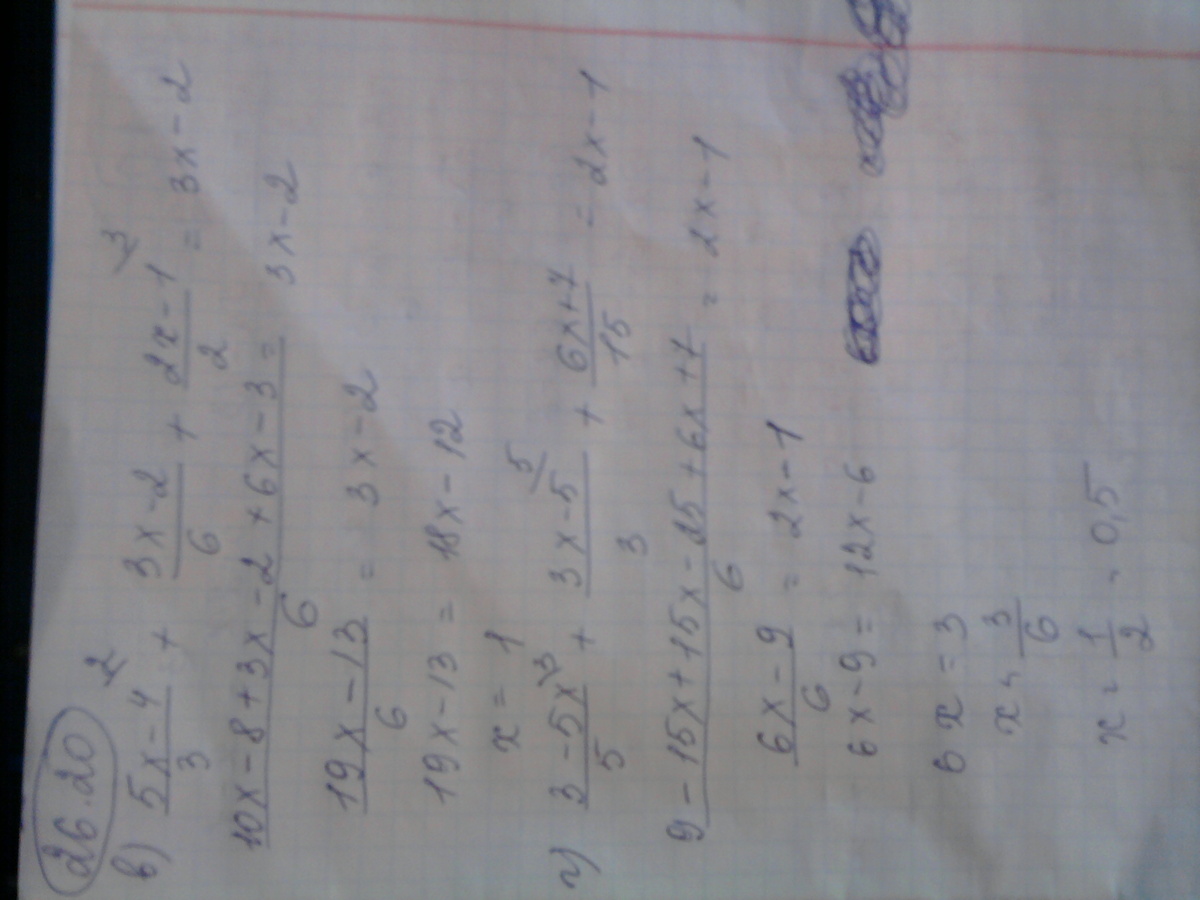 26.20
в) (5x-4)/3 + (3x-2)/6 + (2x-1)/2 = 3x-2
(10x-8+3x-2+6x-3)/6 = 3x-2
(19x-13)/6 = 3x-2
19x-13 = 18x-12
x = 1
г) (3-5x)/5 + (3x-5)/3 + (6x+7)/15 = 2x-1
(9-15x+15x-25+6x+7)/6 = 2x-1
(6x-9)/6 = 2x-1
6x-9 = 12x-6
6x = 3
x = 3/6
x = 1/2 = 0,5